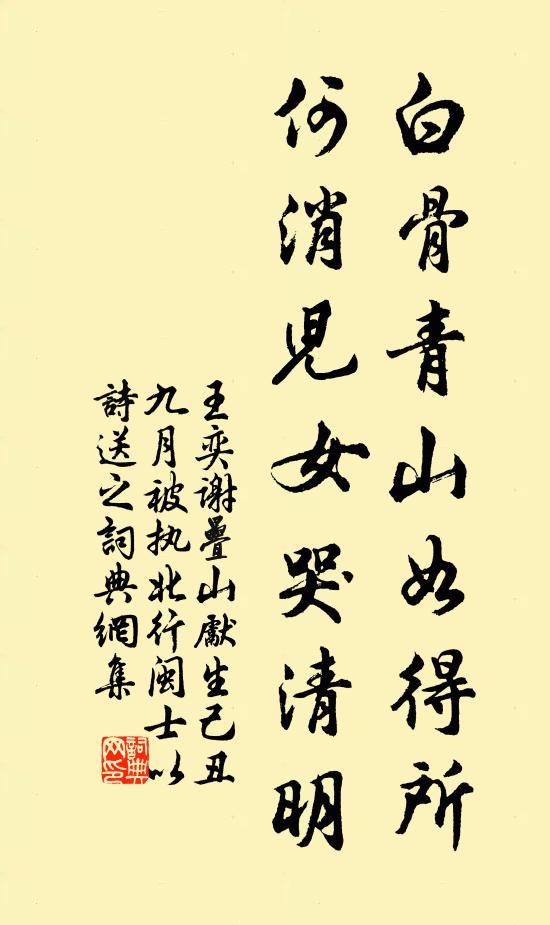 白骨青山如得所
何消児女哭清明
王奕謝疊山獻生己丑
九月被执北行闽士以
詩送之詞典網集
詞典
网印